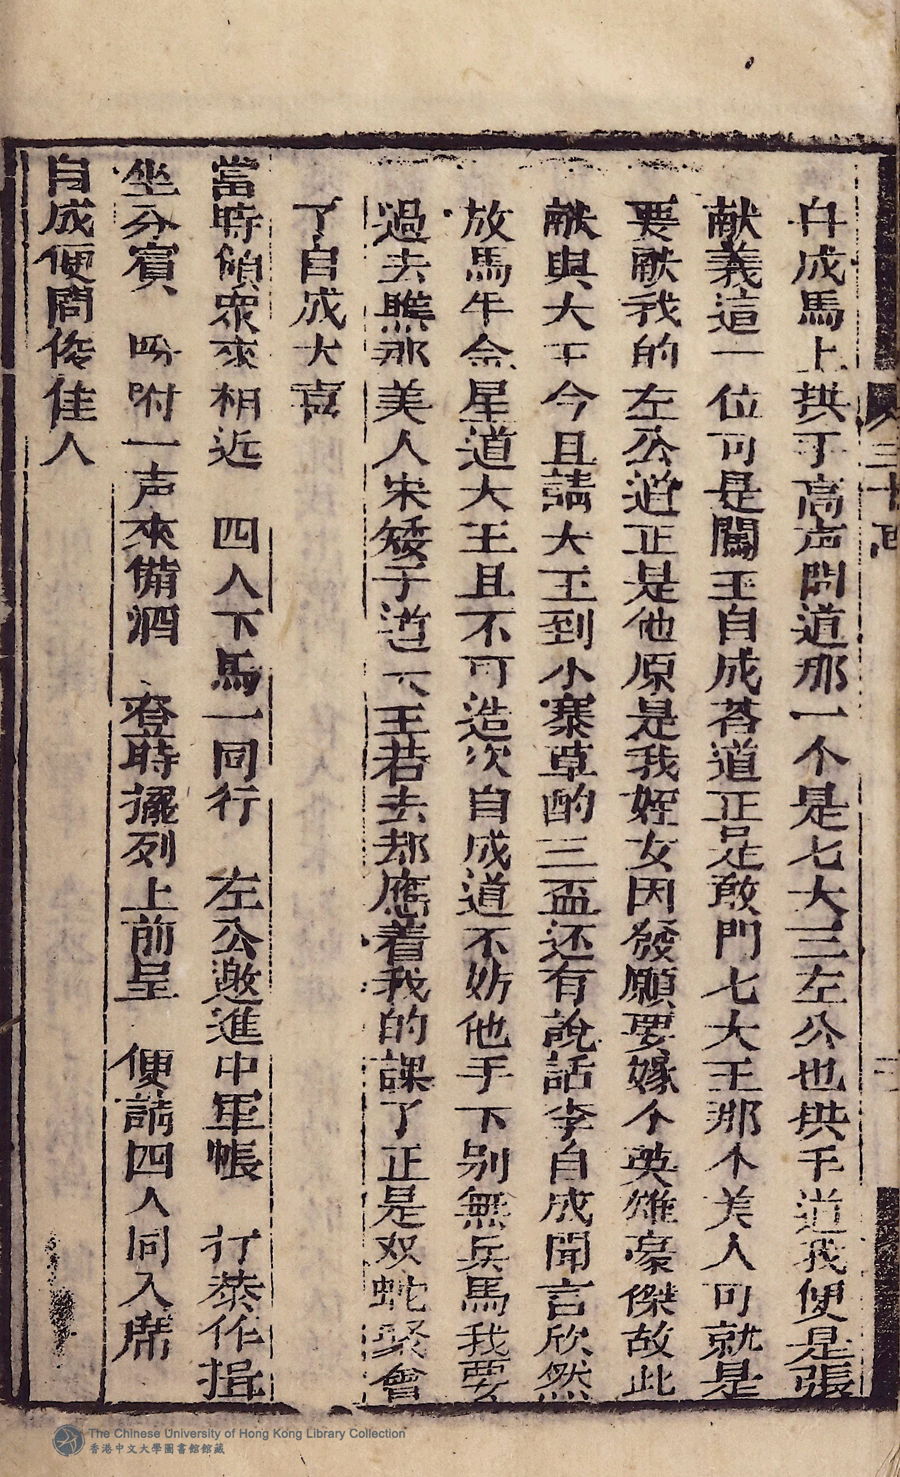 自成馬上拱手高声問道那一个是七大王左公也拱手道我便是張
献義這一位可是闖王自成荅道正是敝門七大王那个美人可就是
要献我的左公道正是他原是我姪女因發願要嫁个英雄豪傑故此
献與大王今且請大王到小寨草酌三盃还有說話李自成聞言欣然
放馬牛金星道大王且不可造次自成道不妨他手下别無兵馬我要
過去瞧那美人宋矮子道大王若去却應着我的課了正是双蛇聚會
了自成大喜
當時傾衆來相近 四人下馬一同行 左公邀進中軍帳 行恭作揖
坐分賓 吩咐一声來俻酒 登時擺列上前呈 便請四人同入席
自成便問俊佳人
三十囬
The Chinese University of Hong Kong Library Collection
香港中文大學圖書館館藏